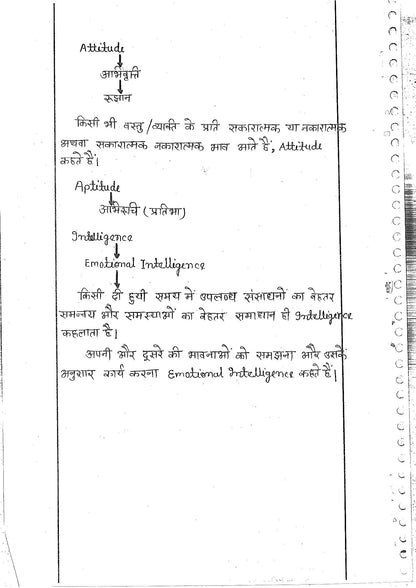 Attitude
अभिवृत्ति
रूझान
किसी भी वस्तु/व्यक्ति के प्रति सकारात्मक या नकारात्मक
अथवा सकारात्मक नकारात्मक भाव आते हैं, Attitude
कहते हैं।
Aptitude
अभिरूचि (प्रतिभा)
Intelligence
Emotional Intelligence
किसी दी हुयी समय में उपलब्ध संसाधनों का बेहतर
समन्वय और समस्याओं का बेहतर समाधान ही Intelligence
कहलाता है।
अपनी और दूसरे की भावनाओं को समझना और उसके
अनुसार कार्य करना Emotional Intelligence कहते हैं।